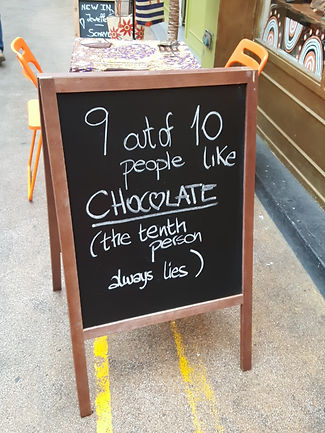 NEW IN
9 out of 10
people like
CHOCOLATE
(the tenth
person
always lies)